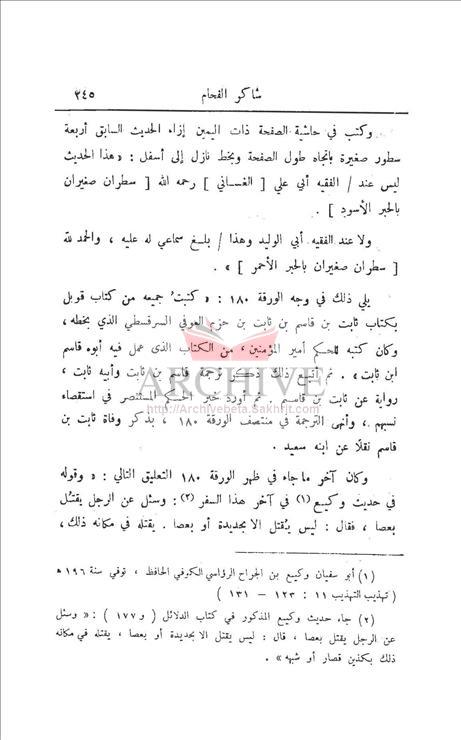 شاكر الفحام ٣٤٥
وكتب في حاشية الصفحة ذات اليمين إزاء الحديث السابق أربعة
سطور صغيرة بإتجاه طول الصفحة وبخط نازل إلى أسفل : « هذا الحديث
ليس عند / الفقيه أبي علي [ الغساني ] رحمه الله [ سطران صغيران
بالحبر الأسود ] .
ولا عند الفقيه أبي الوليد وهذا / بلغ سماعي له عليه ، والحمد لله
[ سطران صغيران بالحبر الأحمر ] » .
يلي ذلك في وجه الورقة ١٨٠ : « كتبتُ جميعه من كتاب قوبل
بكتاب ثابت بن قاسم بن ثابت بن حزم العوفي السرقسطي الذي بخطه ،
وكان كتبه للحكم أمير المؤمنين ، من الكتاب الذى عمل فيه أبوه قاسم
ابن ثابت » . ثم أتبع ذلك ذكر ترجمة قاسم بن ثابت وأبيه ثابت ،
رواية عن ثابت بن قاسم . ثم أورد خبر الحكم المستنصر في استقصاء
نسبهم . وأنهى الترجمة في منتصف الورقة ١٨٠ ، بذكر وفاة ثابت بن
قاسم نقلًا عن ابنه سعيد .
ARCHIVE
http://Archivebeta.Sakhrit.com
وكان آخر ما جاء في ظهر الورقة ١٨٠ التعليق التالي : « وقوله
في حديث وكيع (١) في آخر هذا السفر (٢) : وسئل عن الرجل يقتُل
بعصا ، فقال : ليس يُقتل الا بحديدة أو بعصا . يقتله في مكانه ذلك ،
(١) أبو سفيان وكيع بن الجراح الرؤاسي الكوفي الحافظ ، توفي سنة ١٩٦ ه
( تهذيب التهذيب ١١ : ١٢٣ – ١٣١ )
(٢) جاء حديث وكيع المذكور في كتاب الدلائل ( و ١٧٧ ) : « وسئل
عن الرجل يقتل بعصا ، قال : ليس يقتل الا بحديدة أو بعصا ، يقتله في مكانه
ذلك بكذين قصار أو شبهه » .